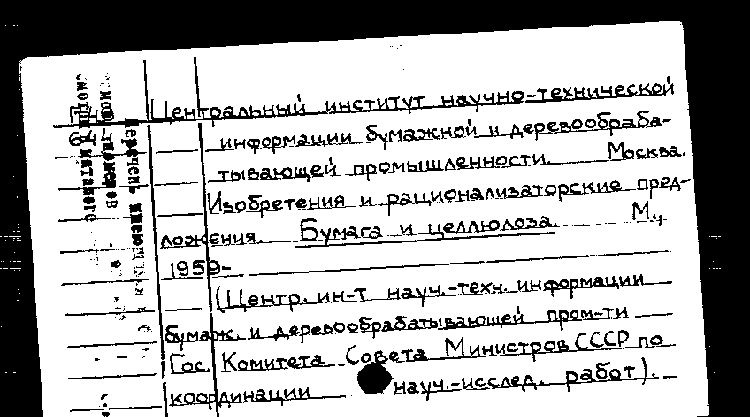 Центральный институт научно-технической
информации бумажной и деревообраба-
тывающей промышленности. Москва.
Изобретения и рационализаторские пред-
ложения. Бумага и целлюлоза. М.,
1959-
(Центр. ин-т науч.-техн. информации
бумаж. и деревообрабатывающей пром-ти
Гос. Комитета Совета Министров СССР по
координации науч.-исслед. работ).